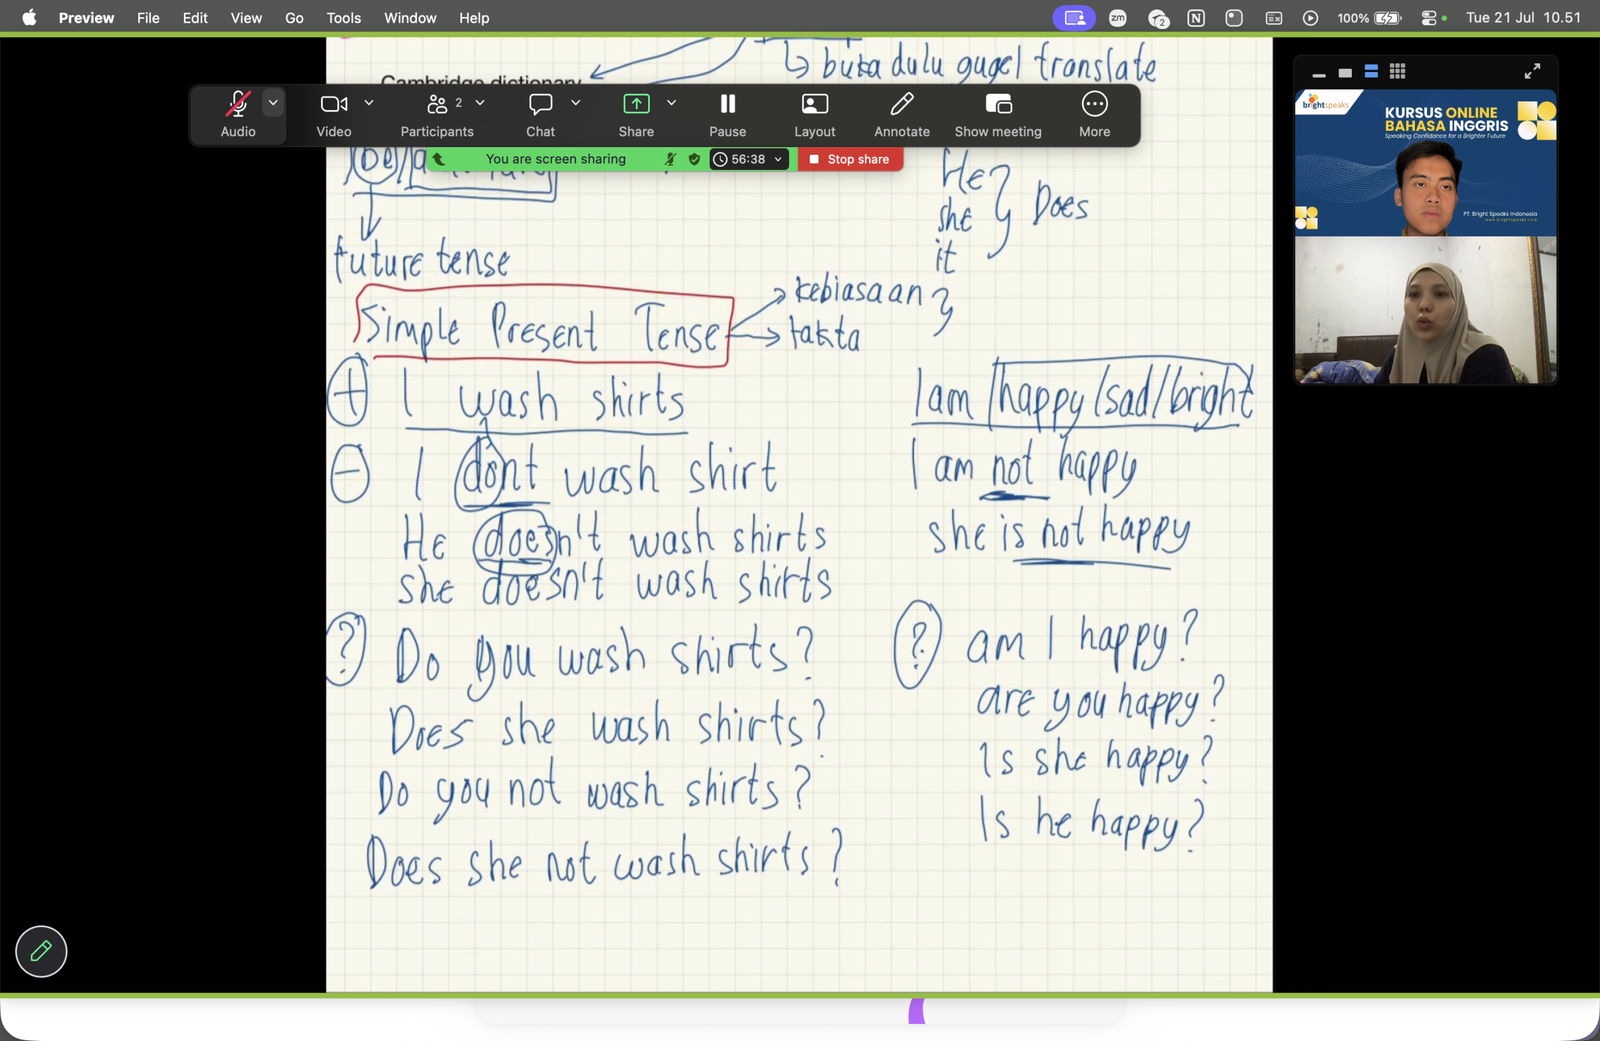 Preview File Edit View Go Tools Window Help
zm 2 100% Tue 21 Jul 10.51
↳ buka dulu gugel translate
Cambridge dictionary
Audio Video Participants 2 Chat Share Pause Layout Annotate Show meeting More
You are screen sharing 56:38 Stop share
brightspeaks
KURSUS ONLINE
BAHASA INGGRIS
Speaking Confidence for a Brighter Future
PT. Bright Speaks Indonesia
be
future tense
He
she
it
Does
Simple Present Tense
kebiasaan
fakta
+ I wash shirts
- I dont wash shirt
He doesn't wash shirts
she doesn't wash shirts
? Do you wash shirts?
Does she wash shirts?
Do you not wash shirts?
Does she not wash shirts?
I am happy/sad/bright
I am not happy
she is not happy
? am I happy?
are you happy?
Is she happy?
Is he happy?